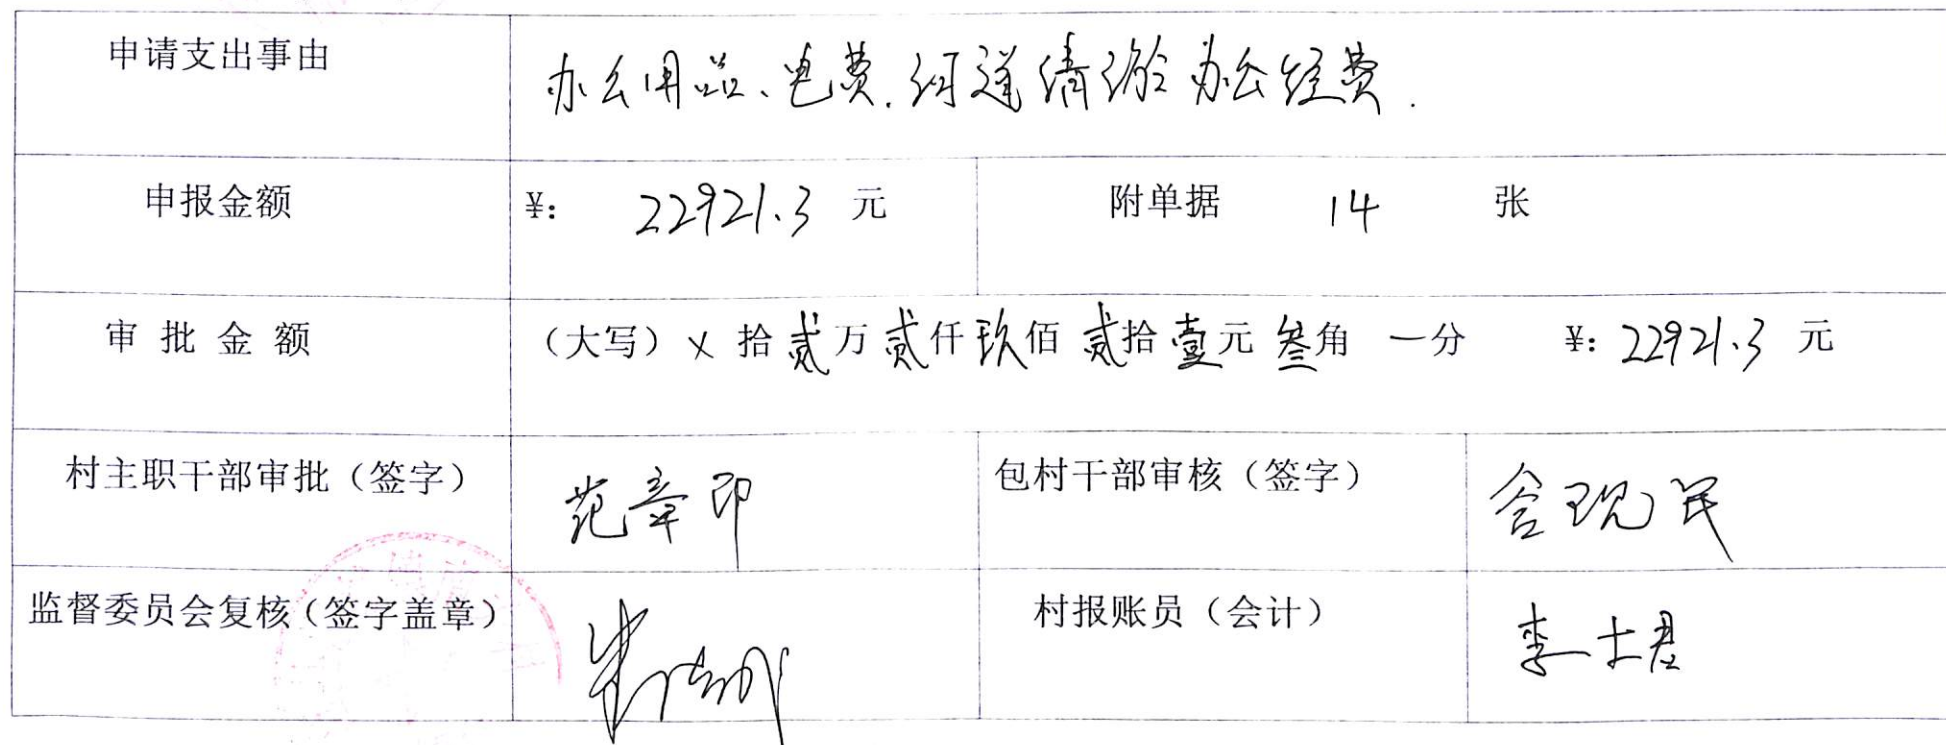 申请支出事由 办公用品、电费.河道清淤办公经费.
申报金额 ¥: 22921.3 元 附单据 14 张
审批金额 (大写) × 拾贰万贰仟玖佰贰拾壹元叁角 一分 ¥: 22921.3 元
村主职干部审批(签字) 范章印 包村干部审核(签字) 现民
监督委员会复核(签字盖章) 村报账员(会计) 李士君